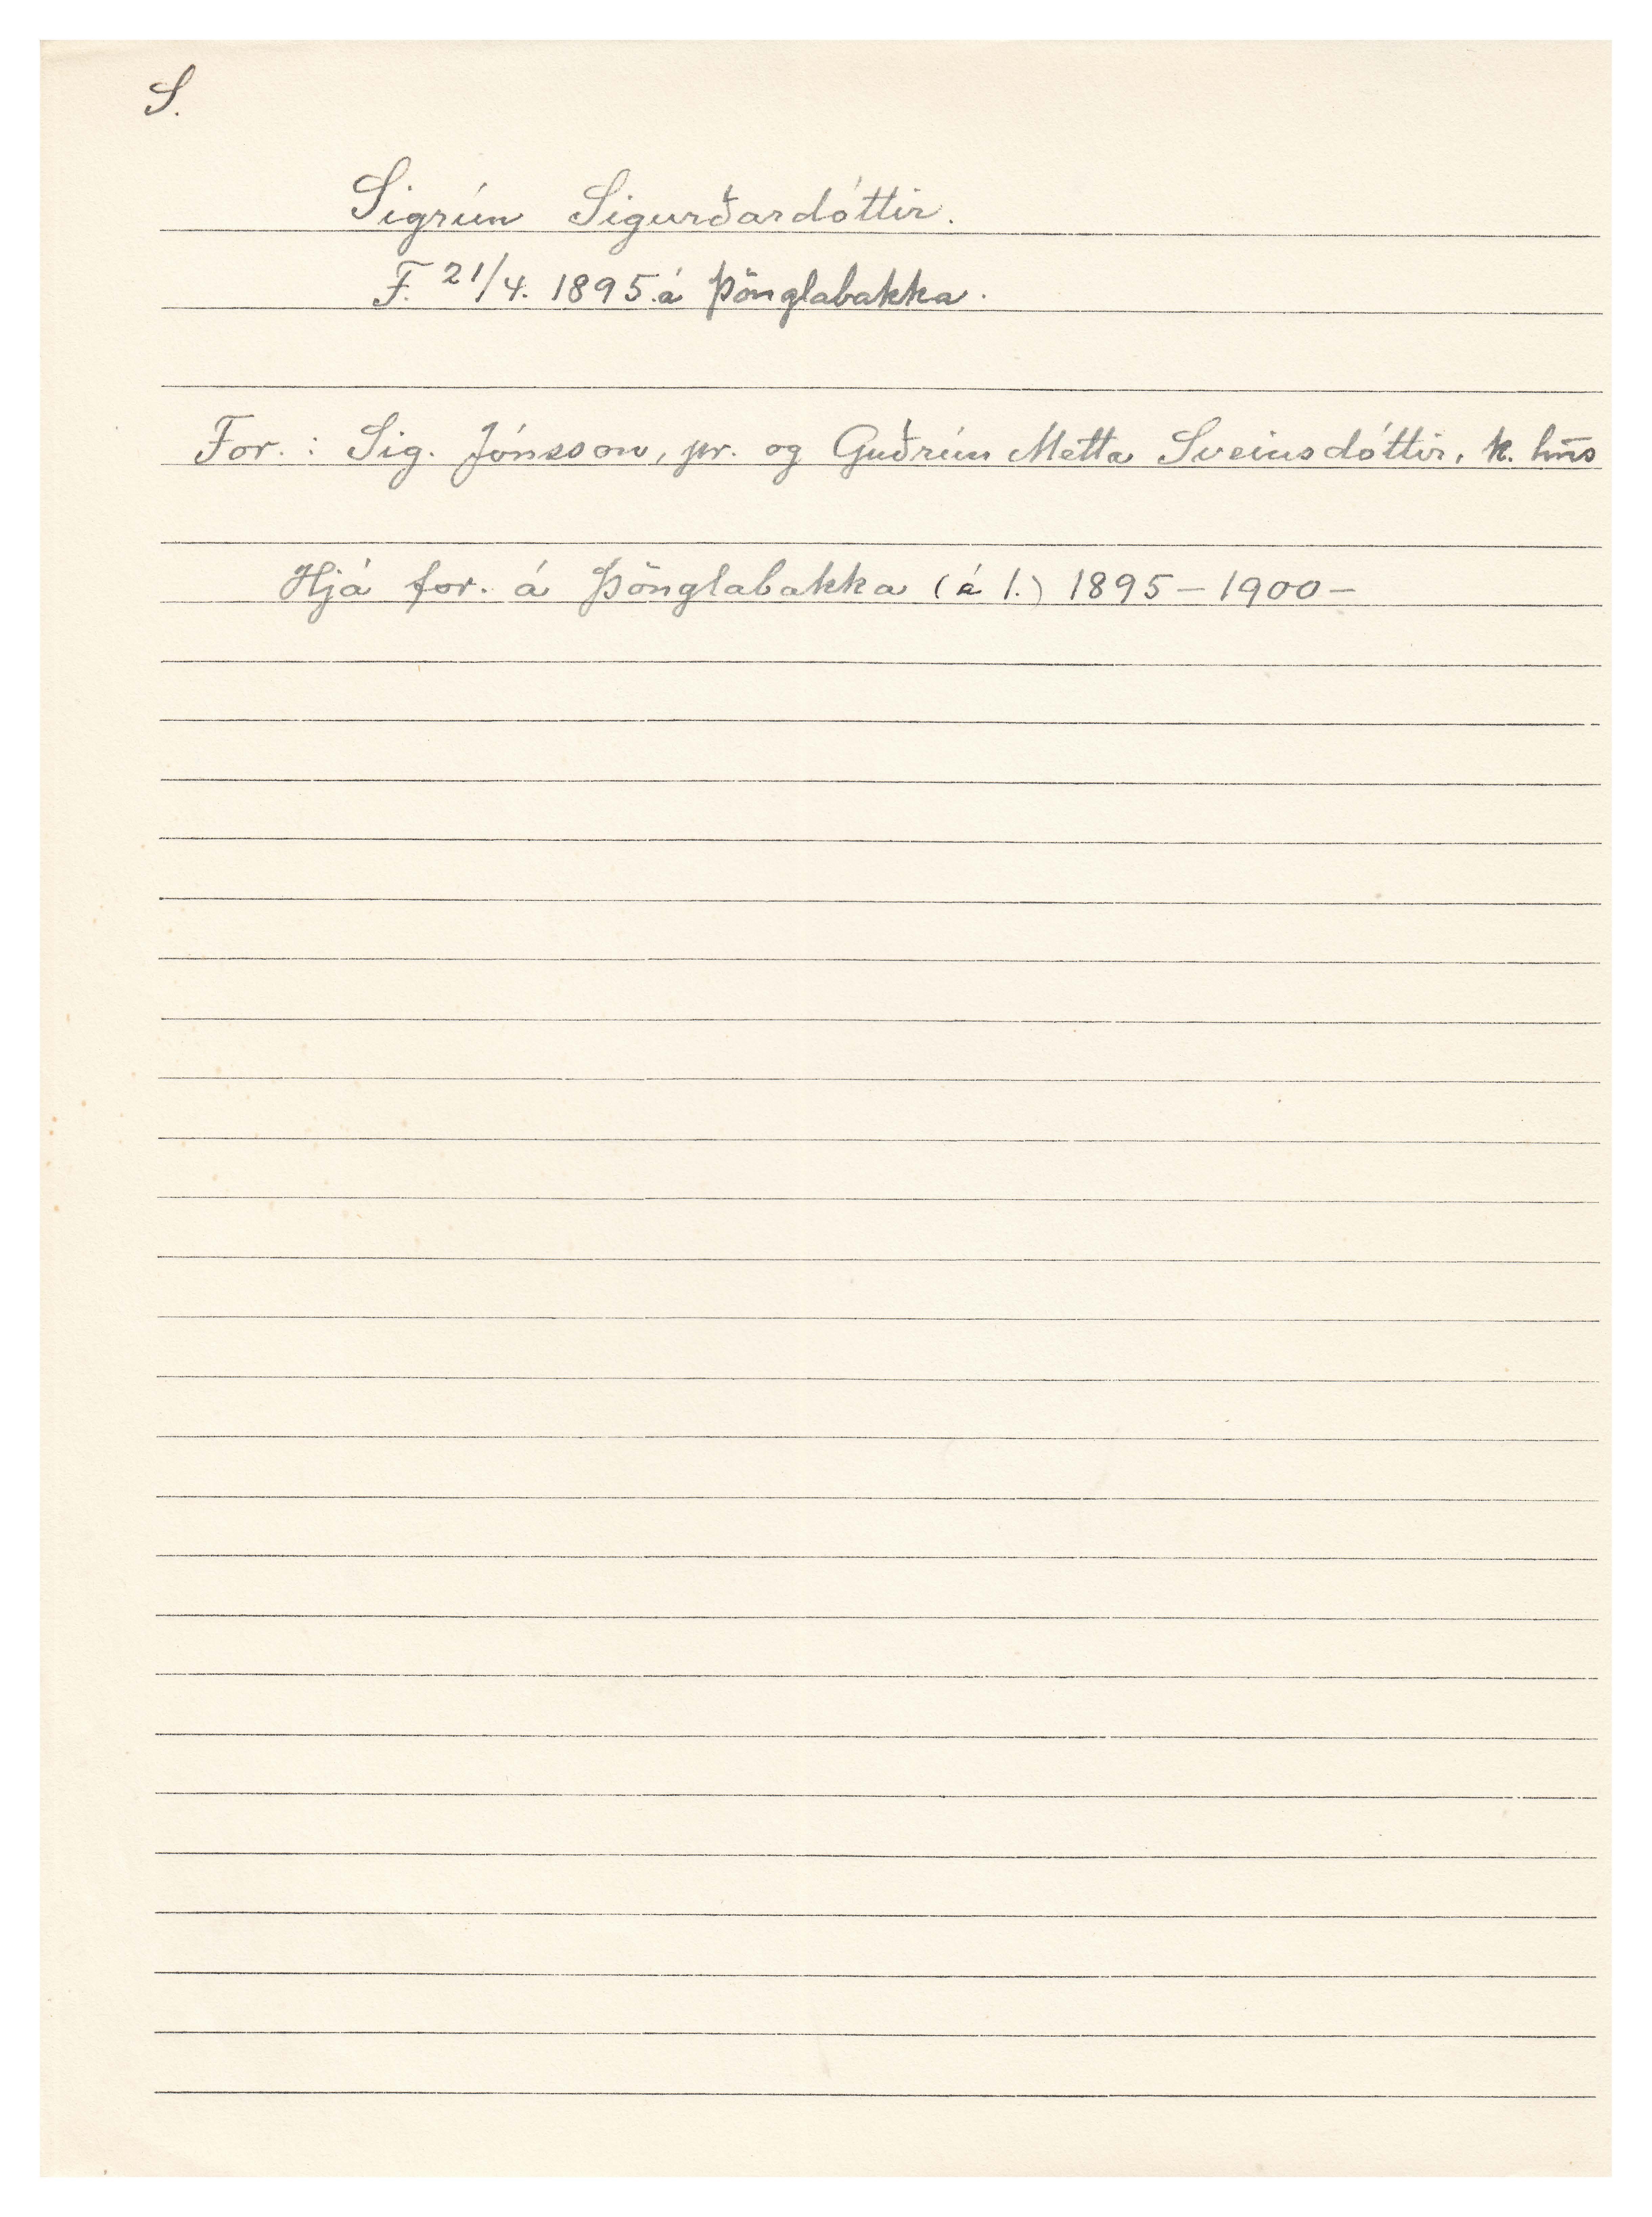 S.
Sigrún Sigurðardóttir.
F. 21/4. 1895 á Þönglabakka.
For. : Sig. Jónsson, pr. og Guðrún Metta Sveinsdóttir, k. hm̄s
Hjá for. á Þönglabakka (á 1.) 1895 – 1900 –